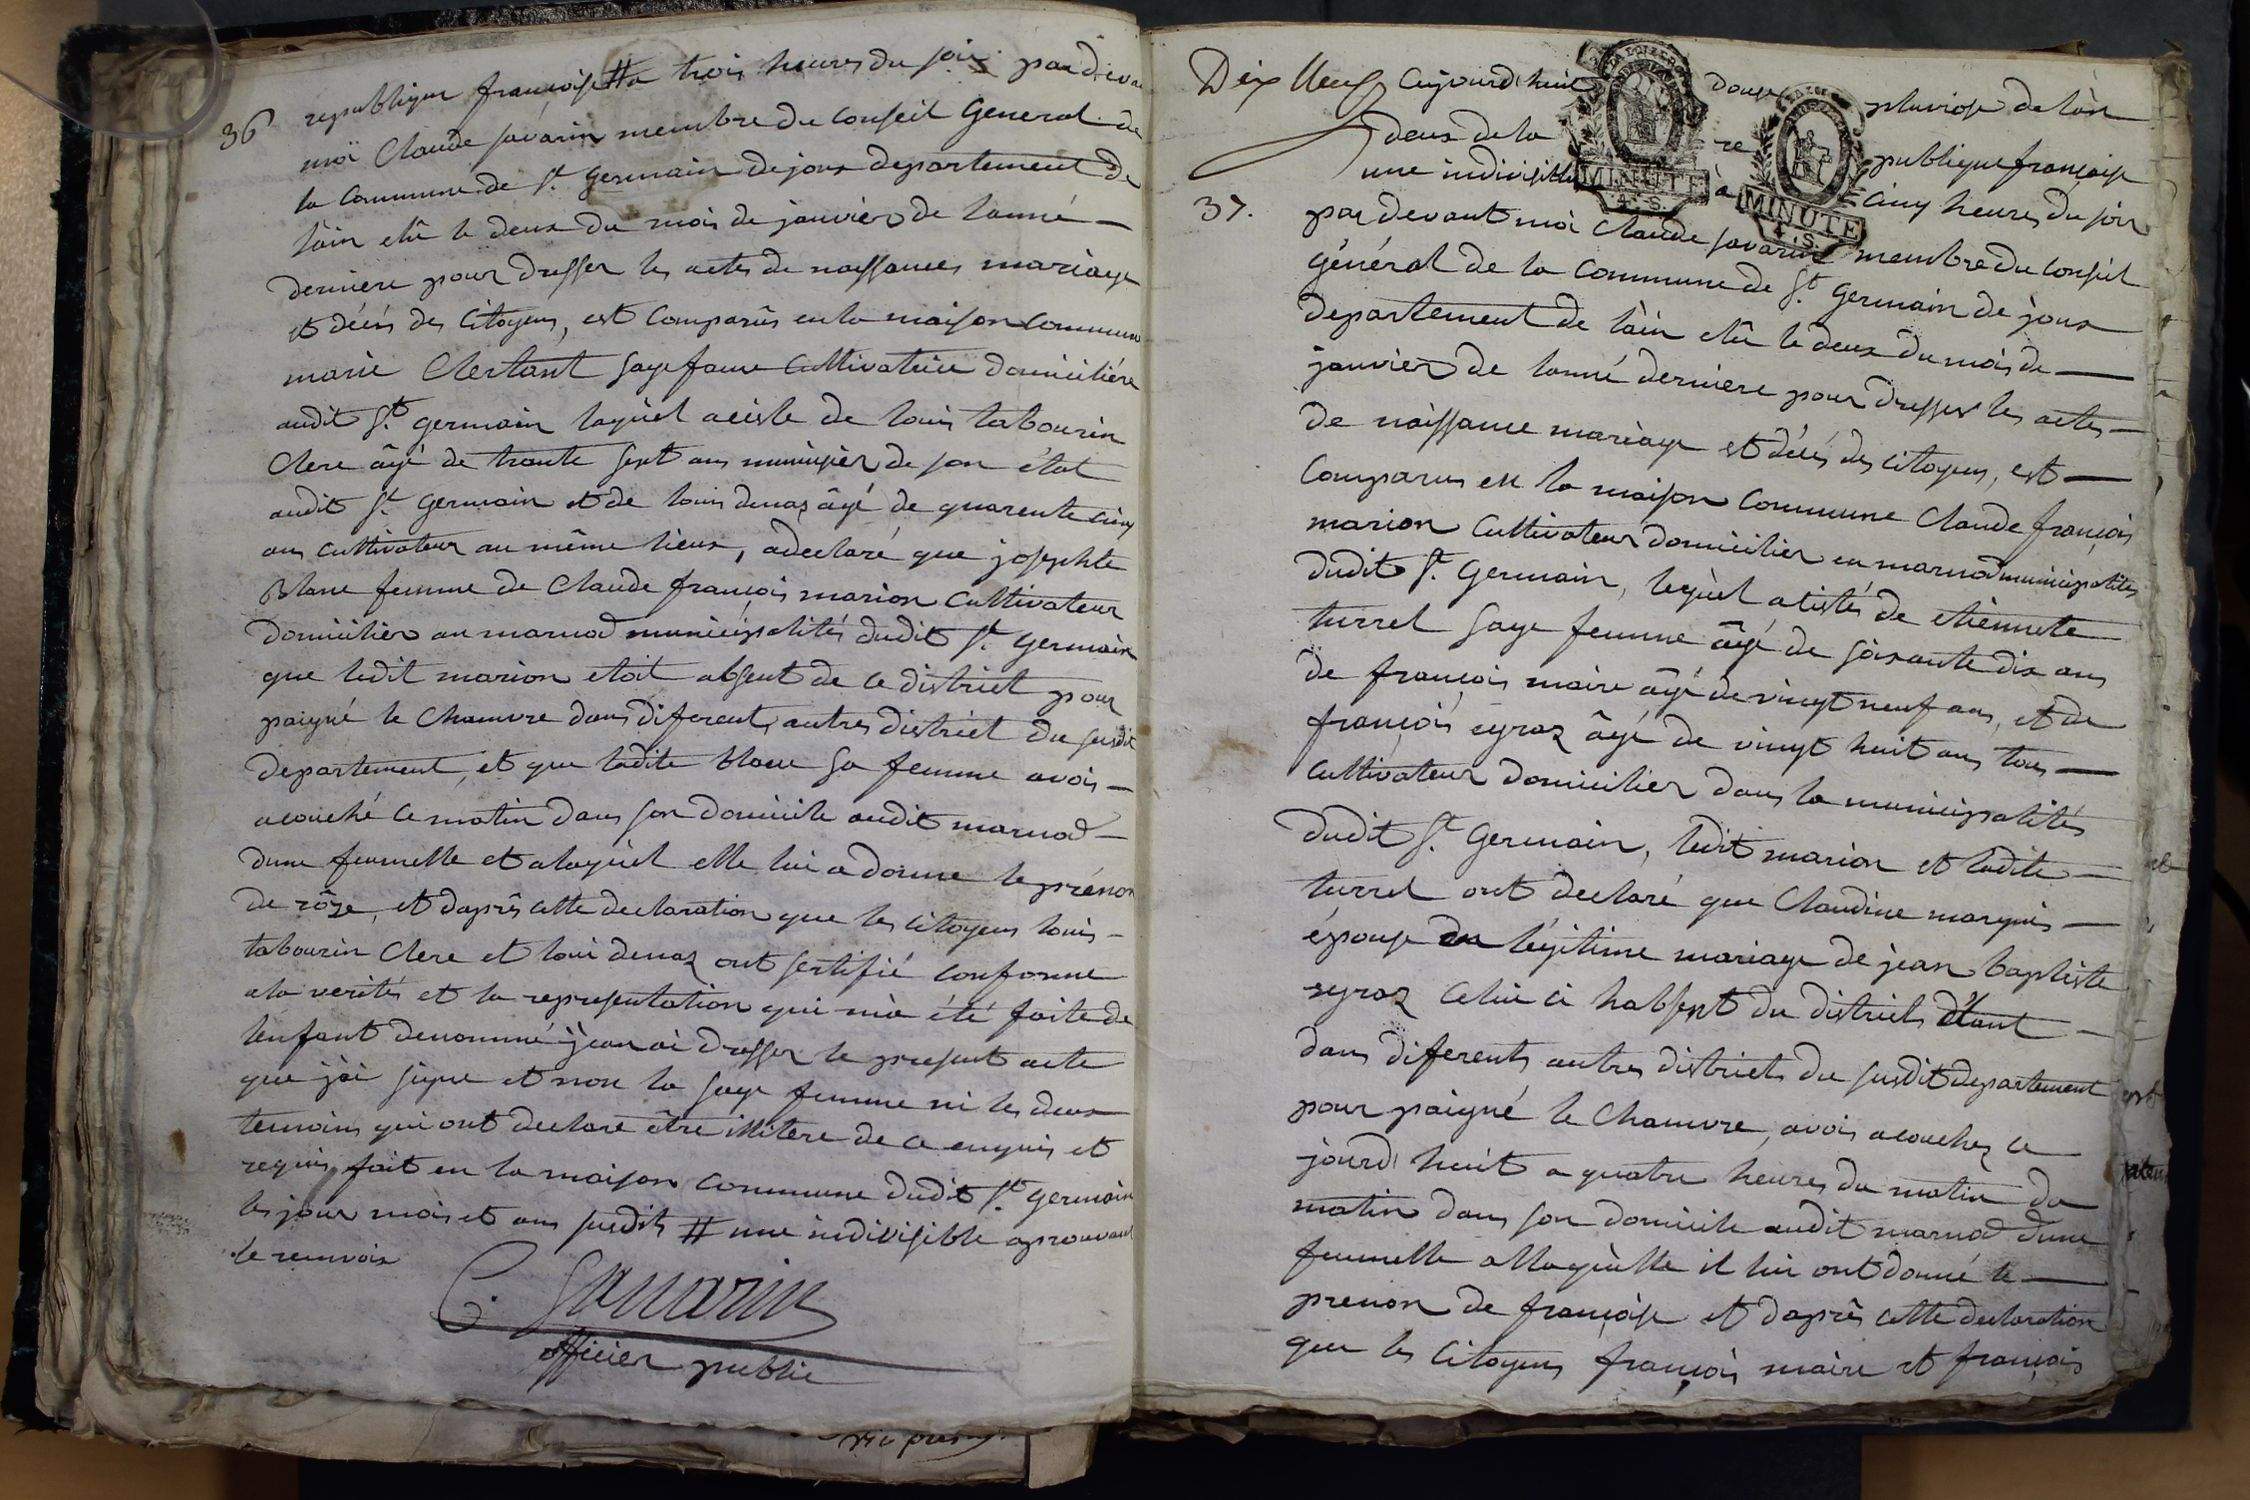 36
republique françoise # a trois heures du soir par devant
moi Claude Savarin membre du Conseil General de
la Commune de St. germain de joux departement de
lain elû le deux du mois de janvier de lanné
derniere pour dresser les actes de naissances mariage
et décés des Citoyens, est Comparûs en la maison Commune
marie Clertant sage fame Cultivatrice domiciliére
audit St. germain laquel acisté de louis tabourin
Clere âgé de trante sept ans munisier de son état
audit St. germain et de louis denaz âgé de quarente cinq
ans cultivateur au même lieux, a declaré que josephte
Blanc femme de Claude françois marion Cultivateur
domicilier au marnod municipalités dudit St. germain
que ledit marion etoit absent de ce district pour
paigné le Chamvre dans diferent autres district du susdit
departement, et que ladite blanc sa femme avois
acouché ce matin dans son domicile audit marnod
dune feumelle et a laquel elle lui a donné le prénon
de rôze, et daprès cette declaration que les citoyens louis
tabourin Clere et loui denaz ont sertifié conforme
a la verités et la representation qui mà été faite de
lenfant denommé jean ai dresser le present acte
que jài signe et non la sage femme ni les deux
temoins qui ont declaré être illitere de ce enquis et
requis fait en la maison commune dudit St. germain
les jour mois et ans susdits # une indivisible aprouvant
le renvois
C. Savarin
officier public
Dix Neuf Aujourdhuit douze pluviose de lan
deux de la republique françoise
une indivisible à Cinq heures du soir
MINUTE
4. S.
MINUTE
4. S.
37.
par devant moi Claude Savarin membre du Conseil
général de la Commune de St. germain de joux
departement de làin elû le deux du mois de
janvier de lanné derniere pour dresser les actes
de naissance mariage et décés des citoyens, est
Comparus en la maison Commune Claude françois
marion Cultivateur domicilier en marnod municipalités
dudit St. Germain, lequel acistés de etiennete
turrel sage femme âgé de soixante dix ans
de françois maire âgé de vingt neuf ans, et de
françois eyraz âgé de vingt huit ans tous
Cultivateur domicilier dans la municipalités
dudit St. Germain, ledit marion et ladite
turrel ont declaré que Claudine marquis
épouse en légitime mariage de jean baptiste
eyraz celui ci habsent du district étant
dans diferents autres districts du susdit departement
pour paigné le Chamvre, avois acouchez ce
jourdhuit a quatre heures du matin du
matin dans son domicile audit marnod dune
feumelle allaquelle il lui ont donné le
prenon de françoise et daprès cette declaration
que les Citoyens françois maire et françois